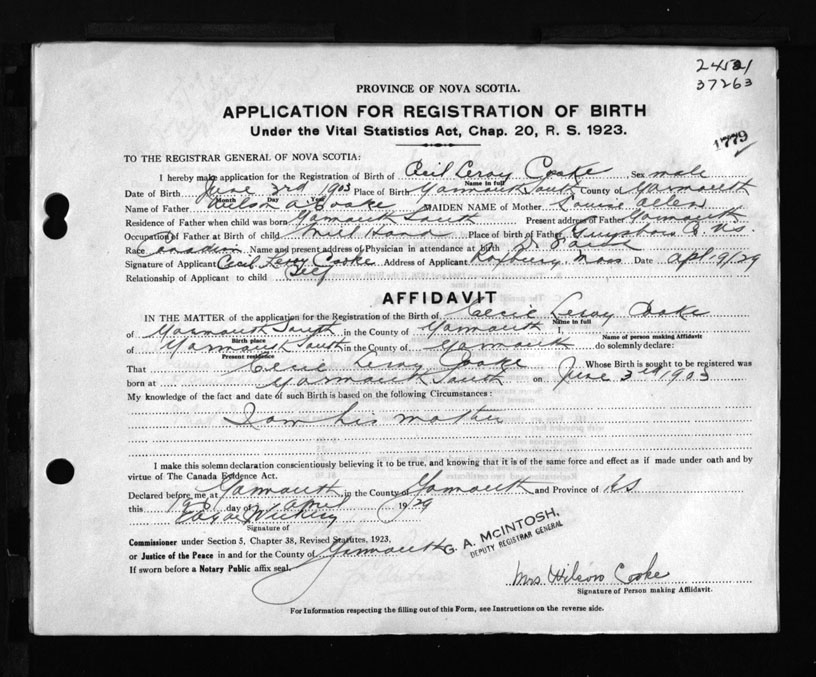 24501
37263
PROVINCE OF NOVA SCOTIA.
APPLICATION FOR REGISTRATION OF BIRTH
Under the Vital Statistics Act, Chap. 20, R. S. 1923.
1779
TO THE REGISTRAR GENERAL OF NOVA SCOTIA:
I hereby make application for the Registration of Birth of Cecil Leroy Cooke Sex male
Name in full
Date of Birth June 3rd 1903 Place of Birth Yarmouth South County of Yarmouth
Month Day Year
Name of Father A Cooke MAIDEN NAME of Mother Louise Allen
Residence of Father when child was born Yarmouth South Present address of Father Yarmouth
Occupation of Father at Birth of child Mill Hand Place of birth of Father Guysboro Co N.S.
Race Canadian Name and present address of Physician in attendance at birth Dr
Signature of Applicant Cecil Leroy Cooke Address of Applicant Roxbury, Mass Date Apl 9/29
Relationship of Applicant to child Self
AFFIDAVIT
IN THE MATTER of the application for the Registration of the Birth of Cecil Leroy Cooke
Name in full
of Yarmouth South in the County of Yarmouth I
Birth place Name of person making Affidavit
of Yarmouth South in the County of Yarmouth do solemnly declare:
Present residence
That Cecil Leroy Cooke Whose Birth is sought to be registered was
born at Yarmouth South on June 3rd 1903
My knowledge of the fact and date of such Birth is based on the following Circumstances:
I am his mother
I make this solemn declaration conscientiously believing it to be true, and knowing that it is of the same force and effect as if made under oath and by
virtue of The Canada Evidence Act.
Declared before me at Yarmouth in the County of Yarmouth and Province of NS
this day of April 1929
Signature of
Commissioner under Section 5, Chapter 38, Revised Statutes, 1923,
or Justice of the Peace in and for the County of Yarmouth
If sworn before a Notary Public affix seal.
G. A. McINTOSH,
DEPUTY REGISTRAR GENERAL
Mrs Wilson Cooke
Signature of Person making Affidavit.
For Information respecting the filling out of this Form, see Instructions on the reverse side.